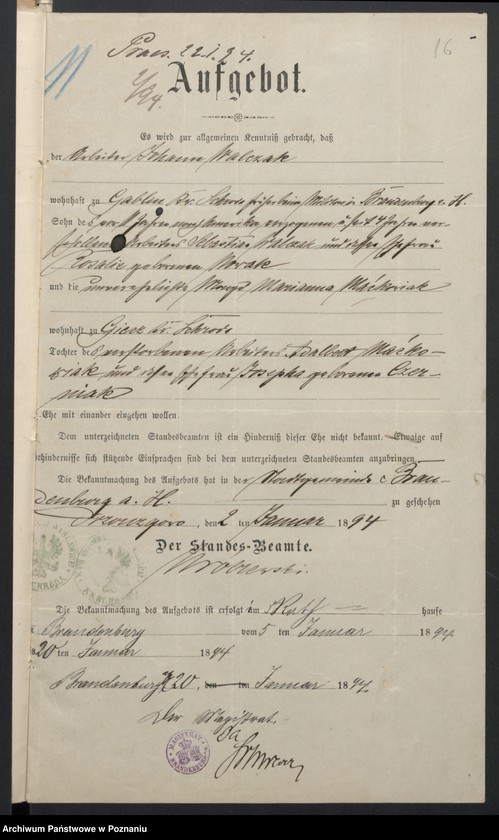 16
Praes. 22.1.94.
Aufgebot.
Es wird zur allgemeinen Kenntniß gebracht, daß
der Arbeiter Johann Walczak
wohnhaft zu Gablin Kr. Schroda früher beim Militär in Brandenburg a. H.
Sohn des vor Jahren nach Amerika verzogenen u. seit 4 Jahren ver-
Arbeiters Walczak und dessen Ehefrau
Rosalie geborenen Nowak
und die unverehelichte Magd Marianna Maćkowiak
wohnhaft zu Giecz Kr. Schroda
Tochter des verstorbenen Arbeiters Adalbert Maćko-
wiak und dessen Ehefrau Josepha geborenen Czer-
niak
Ehe mit einander eingehen wollen.
Dem unterzeichneten Standesbeamten ist ein Hinderniß dieser Ehe nicht bekannt. Etwaige auf
Ehehindernisse sich stützende Einsprachen sind bei dem unterzeichneten Standesbeamten anzubringen.
Die Bekanntmachung des Aufgebots hat in der Stadtgemeinde Bran-
denburg a. H. zu geschehen
den 2 ten Januar 1894
Der Standes-Beamte.
Die Bekanntmachung des Aufgebots ist erfolgt im Rath- hause
Brandenburg vom 5 ten Januar 1894
20 ten Januar 1894
Brandenburg a/H 20, den ten Januar 1894.
Der Magistrat.
MAGISTRAT BRANDENBURG
Archiwum Państwowe w Poznaniu